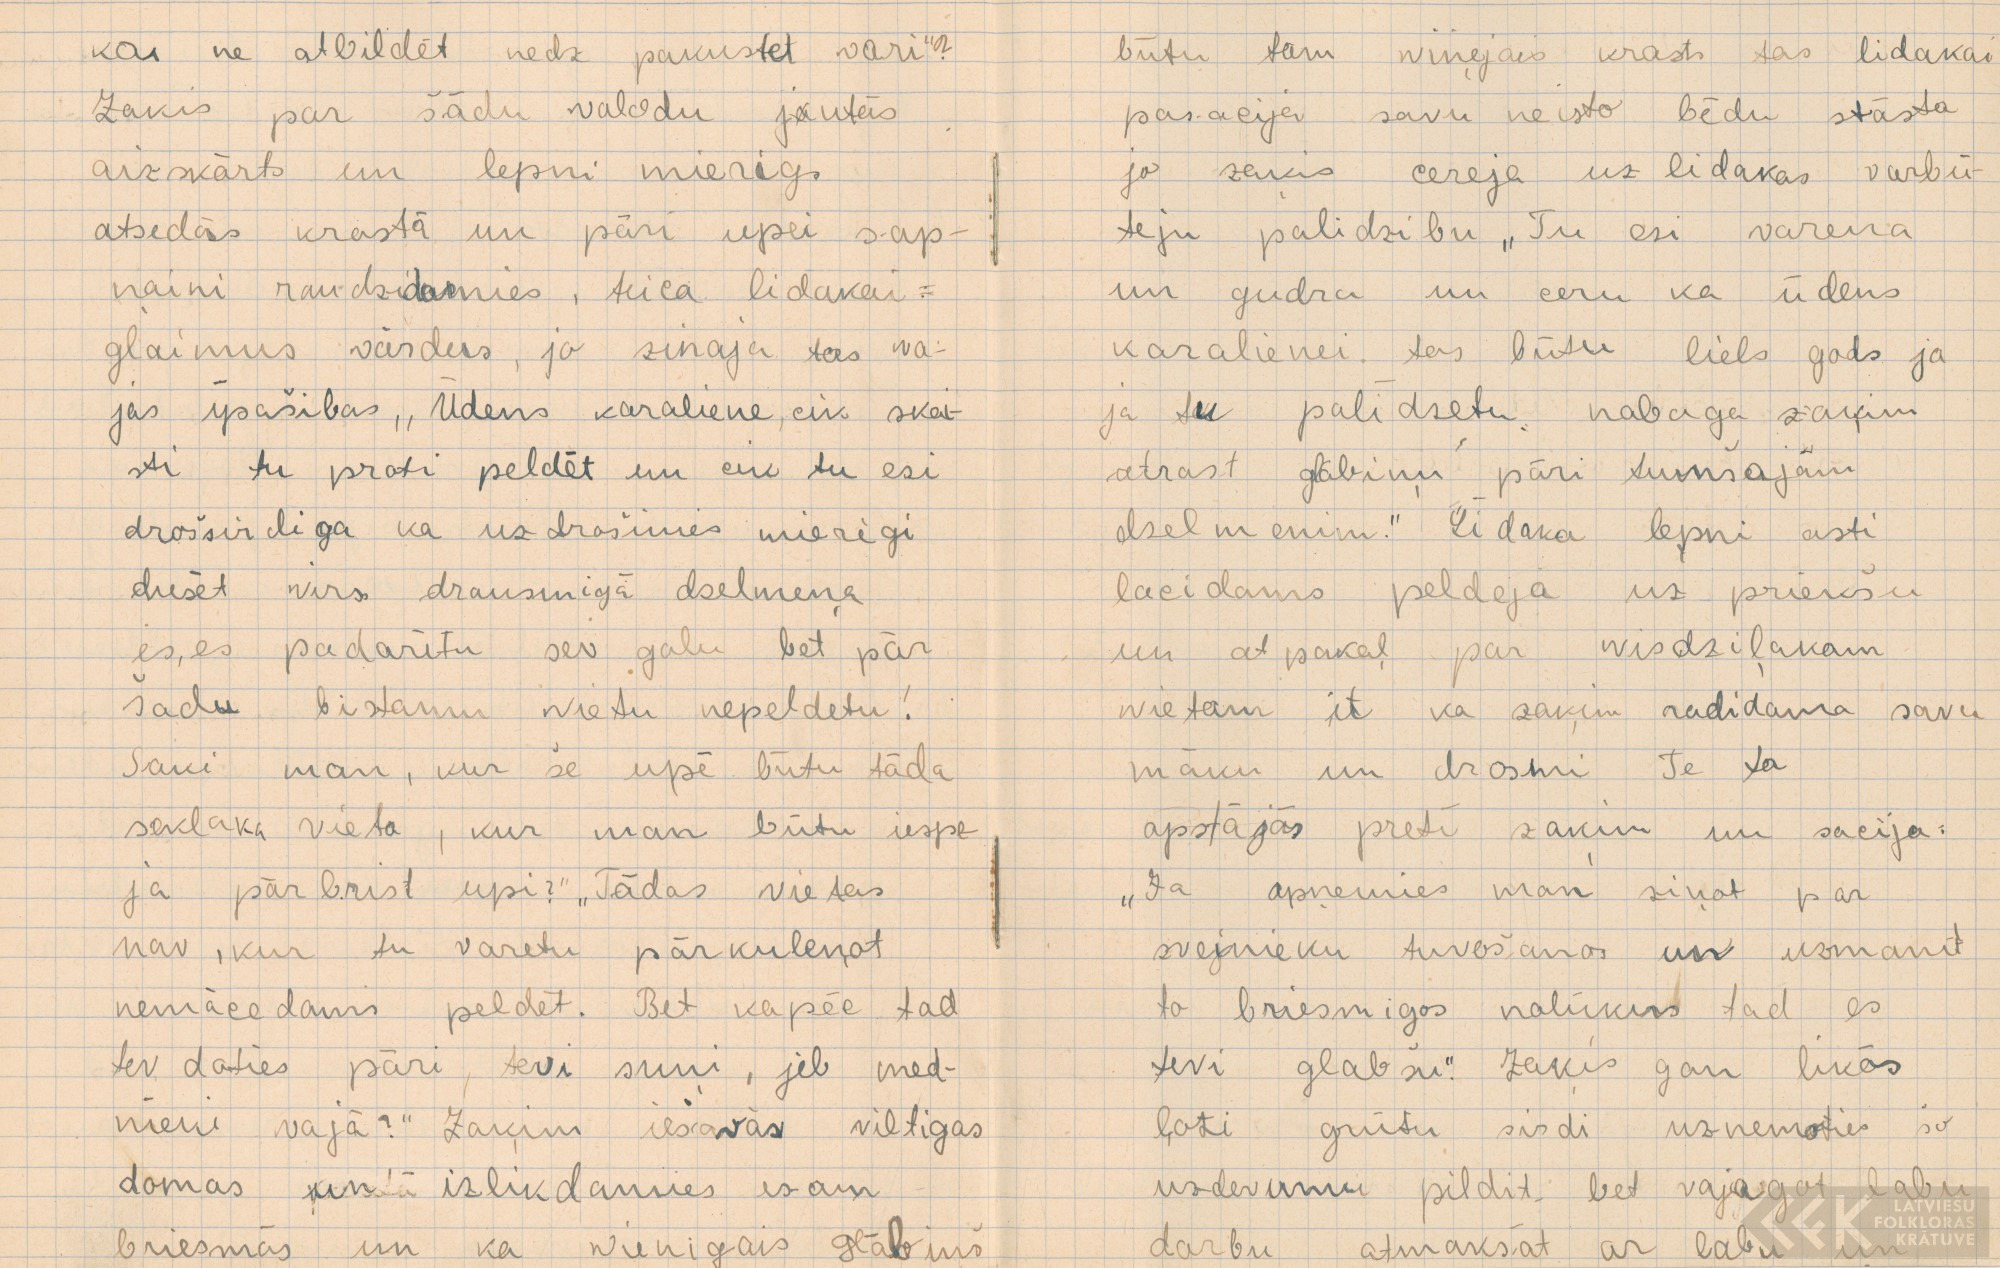 kas ne atbildēt nedz pakustet vari"?
Zakis par šādu valodu jutās
aizskārts un lepni mierigs
atsedās krastā un pāri upei sap-
ņaini raudzidamies, teica lidakai =
glaimus vārdus, jo zinaja tas va-
jās īpašibas,, Ūdens karaliene, cik skai-
sti tu proti peldēt un cik tu esi
droširdiga ka uzdrošinies mierigi
dusēt virs drausmigā dzelmeņa
es, es padarītu sev galu bet pār
šadu bistamu vietu nepeldetu!
Saki man, kur še upē būtu tāda
seklaka vieta, kur man būtu iespe
ja pārbrist upi?" „Tādas vietas
nav, kur tu varetu pārkuleņot
nemācedams peldēt. Bet kapēc tad
tev doties pāri, tevi suni, jeb med-
nieni vajā?" Zaķim iešavās viltigas
domas un izlikdamies esam
briesmās un ka vienigais glābiņš
būtu tam viņējais krasts tas lidakai
pasacija savu neisto bēdu stāsta
jo zakis cereja uz lidakas varbū-
teju palidzibu „Tu esi varena
un gudra un ceru ka ūdens
karalienei tas būtu liels gods ja
ja tu palīdzetu nabaga zaķim
atrast glābiņu pāri tumšajām
dzelmenim." Līdaka lepni asti
locidams peldeja uz priekšu
un atpakaļ par visdziļakam
vietam it ka zaķim radidama savu
māku un drosmi Te ta
apstājās pretī zakim un sacija:
„Ja apņemies man ziņot par
svejnieku tuvošanos un uzmanīt
to briesmigos nolūkus tad es
tevi glabšu". Zaķis gan likās
ļoti grūtu sirdi uznemoties šo
uzdevumu pildīt bet vajagot labu
darbu atmaksāt ar labu un
LATVIEŠU
FOLKLORAS
KRĀTUVE